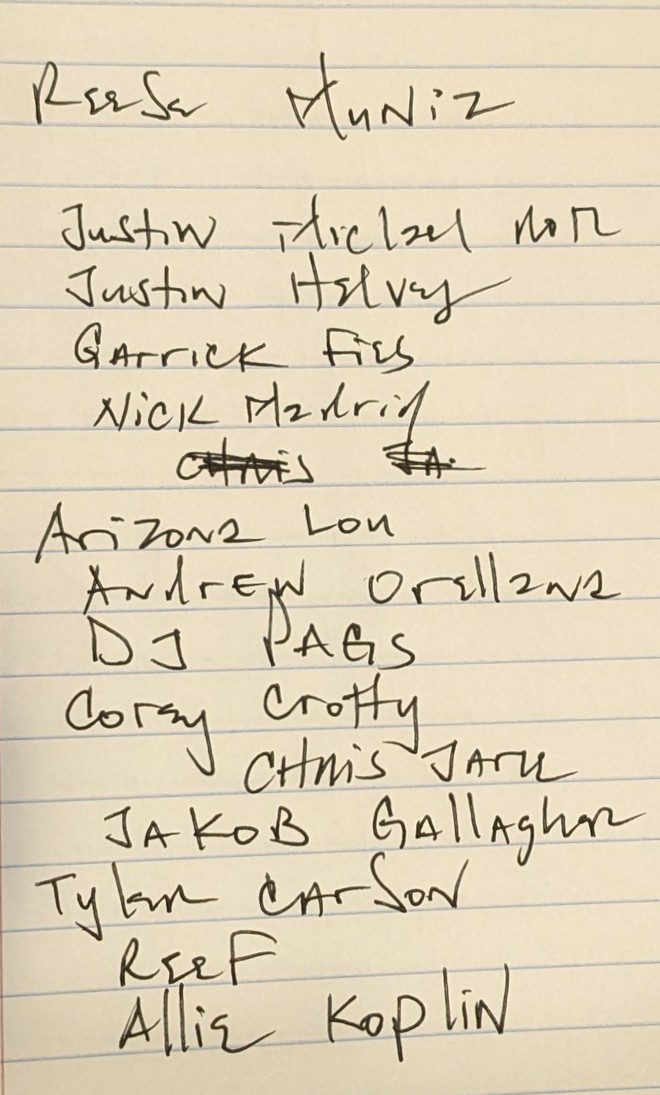 Reese Muniz
Justin Michael
Justin Helvey
Garrick Fies
Nick Madrid
Chris
Arizona Lou
Andrew Orellana
DJ PAGS
Corey Crotty
Chris
JAKOB Gallagher
Tyler Carson
Reef
Allie Koplin